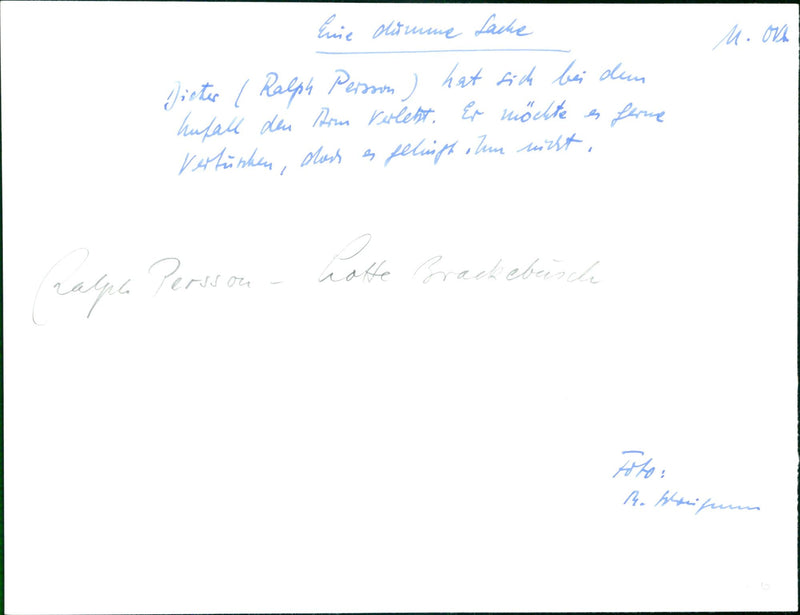 Eine dumme Sache
11. Okt.
Dieter (Ralph Persson) hat sich bei dem
Unfall den Arm verletzt. Er möchte es gerne
vertuschen, doch es gelingt ihm nicht.
Ralph Persson - Lotte Brackebusch
Foto: